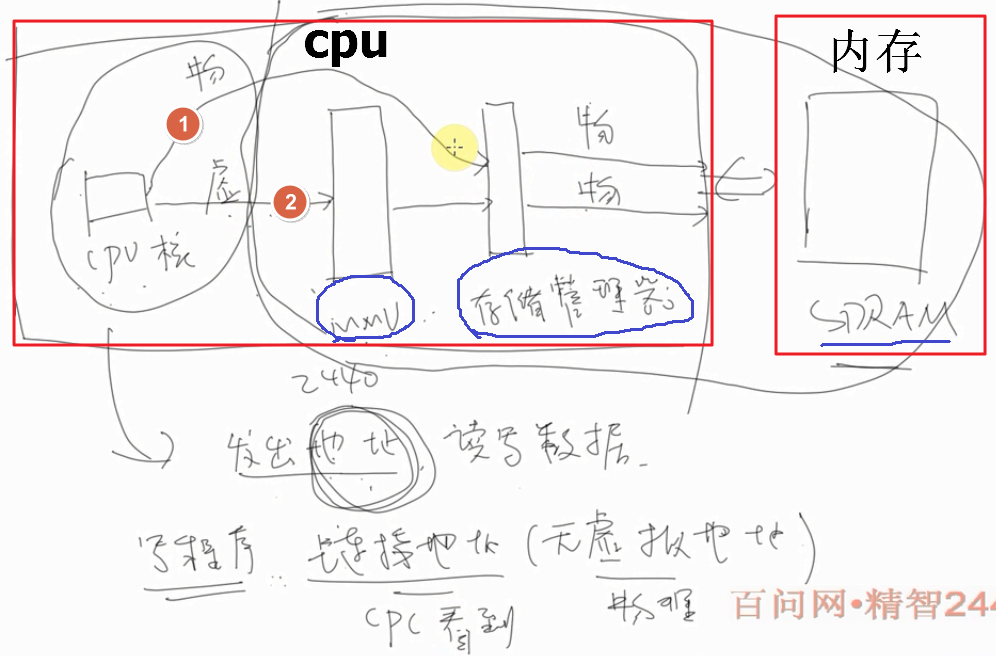 cpu
内存
物
1
物
虚
2
物
CPU 核
MMU
存储管理器
SDRAM
2440
发出地址 读写数据
写程序 链接地址(无虚拟地址)
CPC看到
物理
百问网•精智244